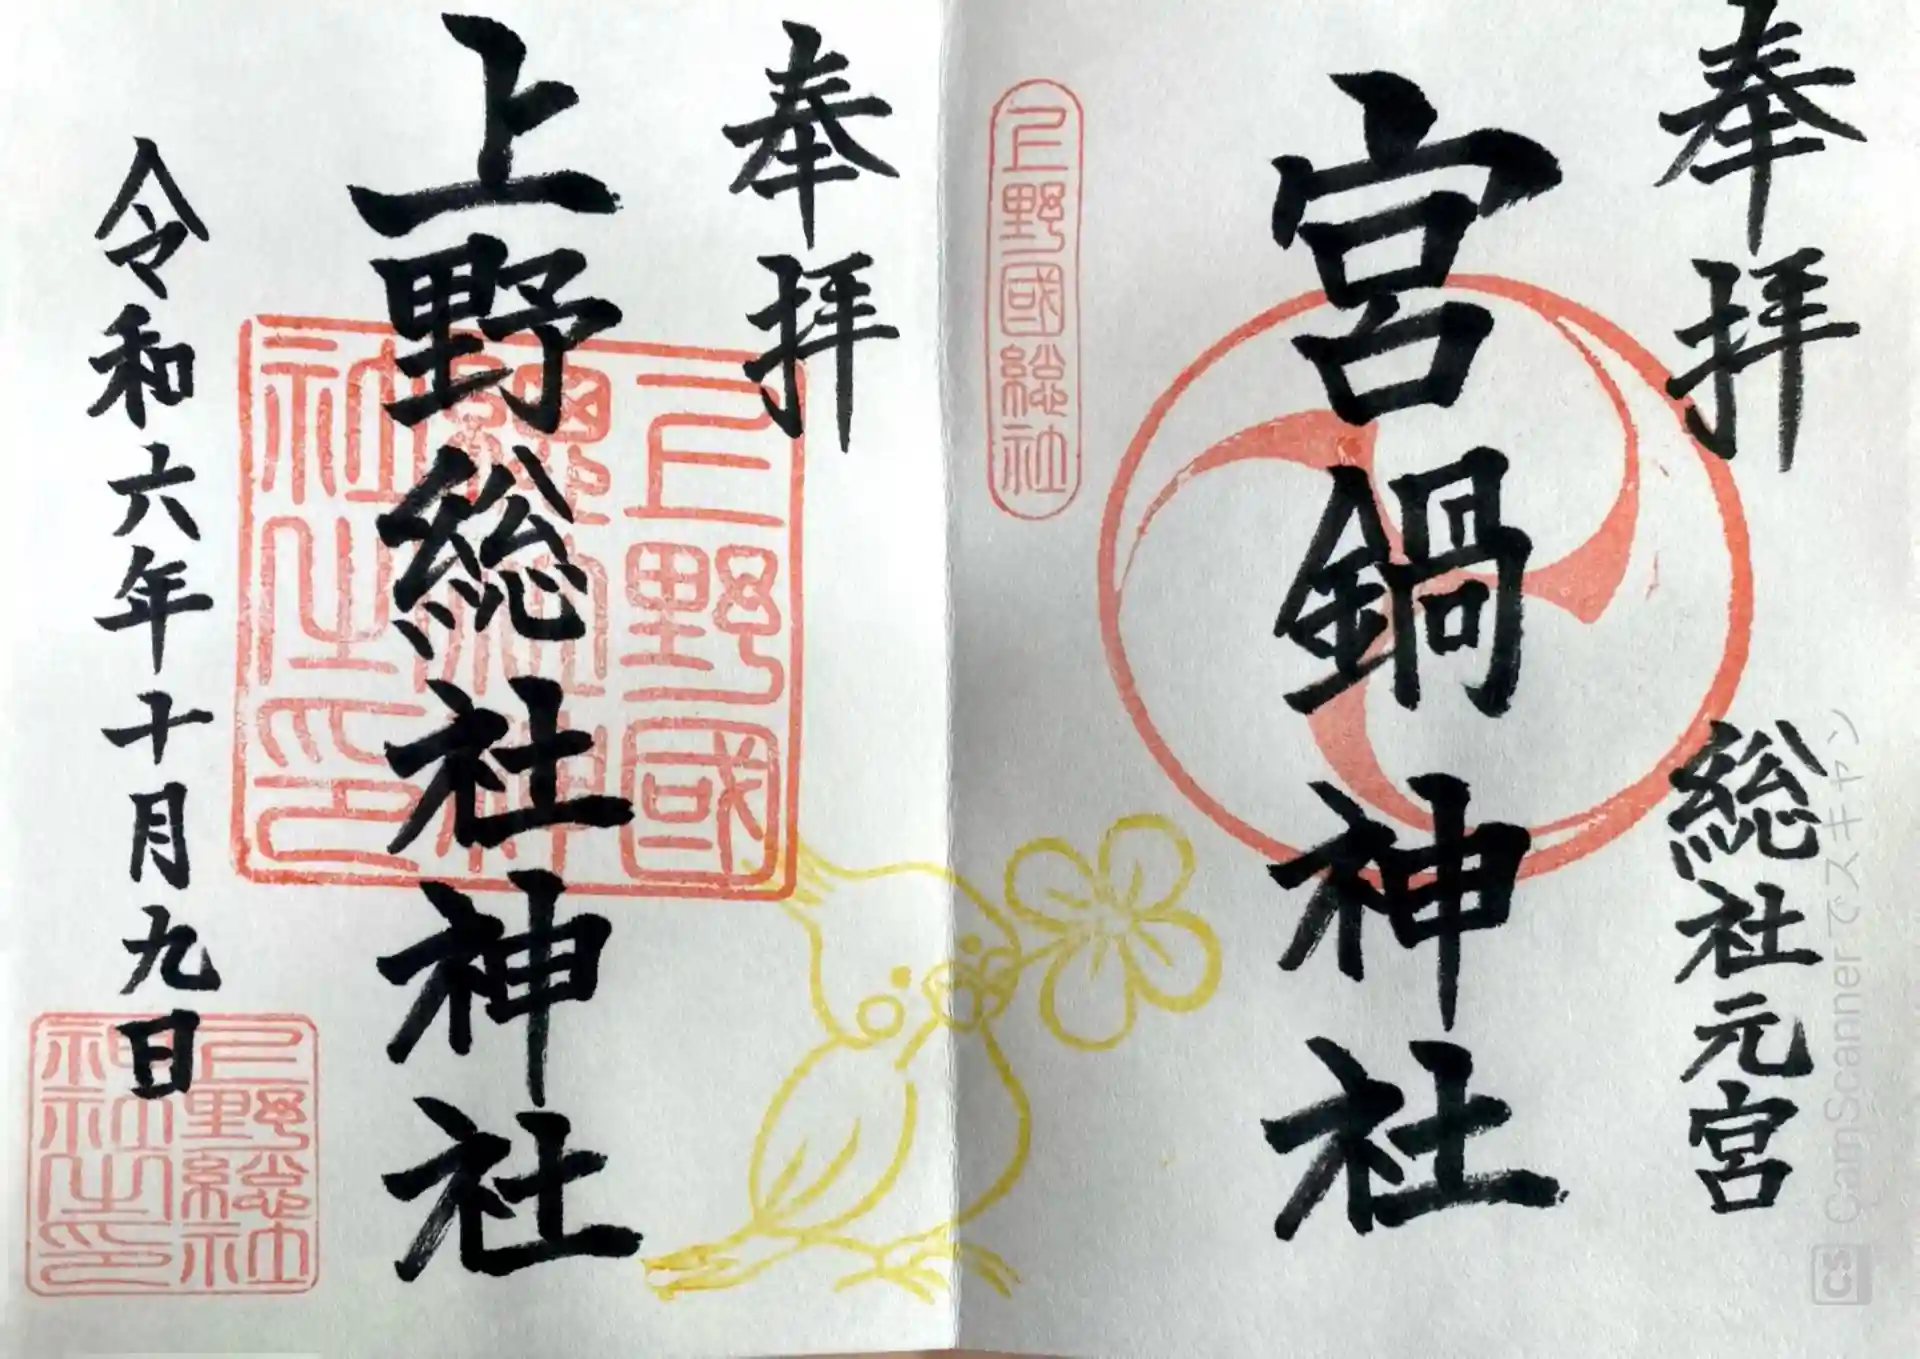 奉拝
総社元宮
宮鍋神社
上野國総社
奉拝
上野総社神社
上野國
社之印
令和六年十月九日
上野総社
神社之印
CS CamScannerでスキャン